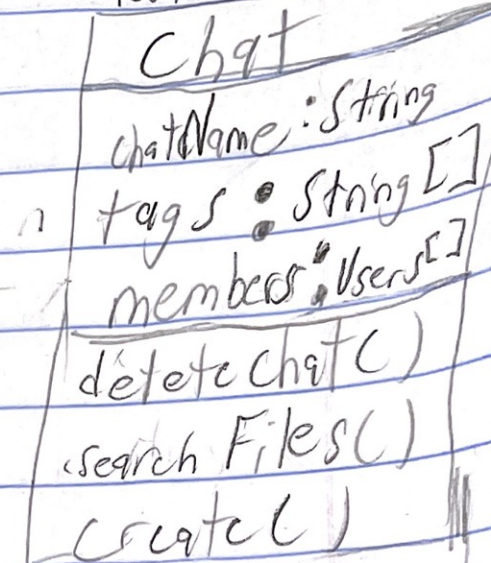 Chat
chatName : String
tags : String []
members : Users []
deleteChat()
searchFiles()
create()